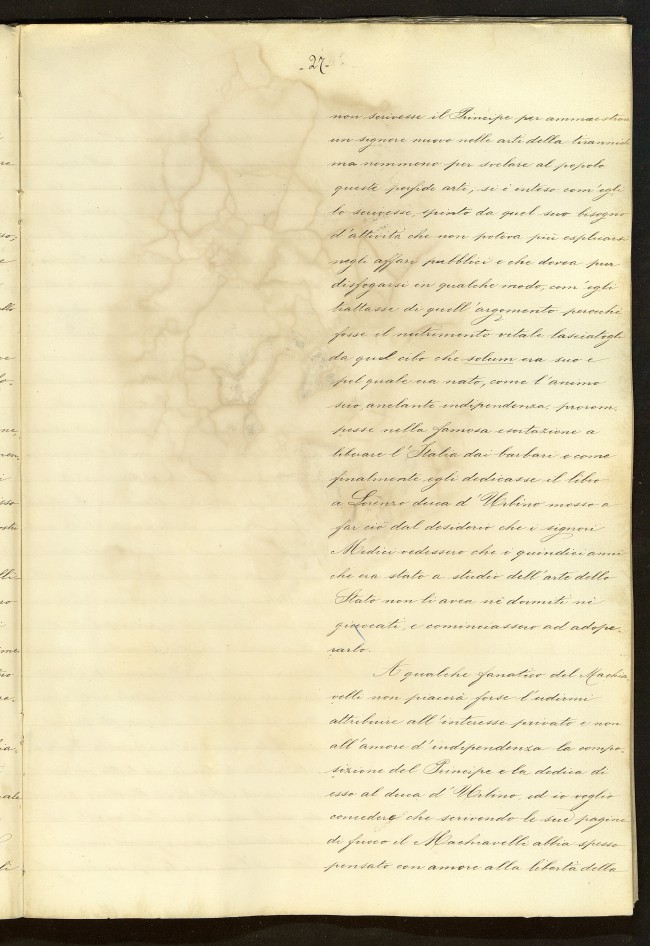 - 27 -
non scrivesse il Principe per ammaestrare
un signore nuovo nelle arti della tirannide
ma nemmeno per svelare al popolo
queste perfide arti, si è inteso com'egli
lo scrivesse, spinto da quel suo bisogno
d'attività che non poteva più esplicarsi
negli affari pubblici e che dovea pur
disfogarsi in qualche modo, com'egli
trattasse di quell'argomento perchè
fosse il nutrimento vitale lasciatogli
da quel cibo che solum era suo e
pel quale era nato, come l'animo
suo, anelante indipendenza, prorom-
pesse nella famosa esortazione a
liberare l'Italia dai barbari e come
finalmente egli dedicasse il libro
a Lorenzo duca d'Urbino mosso a
far ciò dal desiderio che i signori
Medici vedessero che i quindici anni
che era stato a studio dell'arte dello
Stato non li avea nè dormiti nè
giuocati, e cominciassero ad adope-
rarlo.
A qualche fanatico del Machia-
velli non piacerà forse l'udirmi
attribuire all'interesse privato e non
all'amore d'indipendenza la compo-
sizione del Principe e la dedica di
esso al duca d'Urbino, ed io voglio
concedere che scrivendo le sue pagine
di fuoco il Machiavelli abbia spesso
pensato con amore alla libertà della